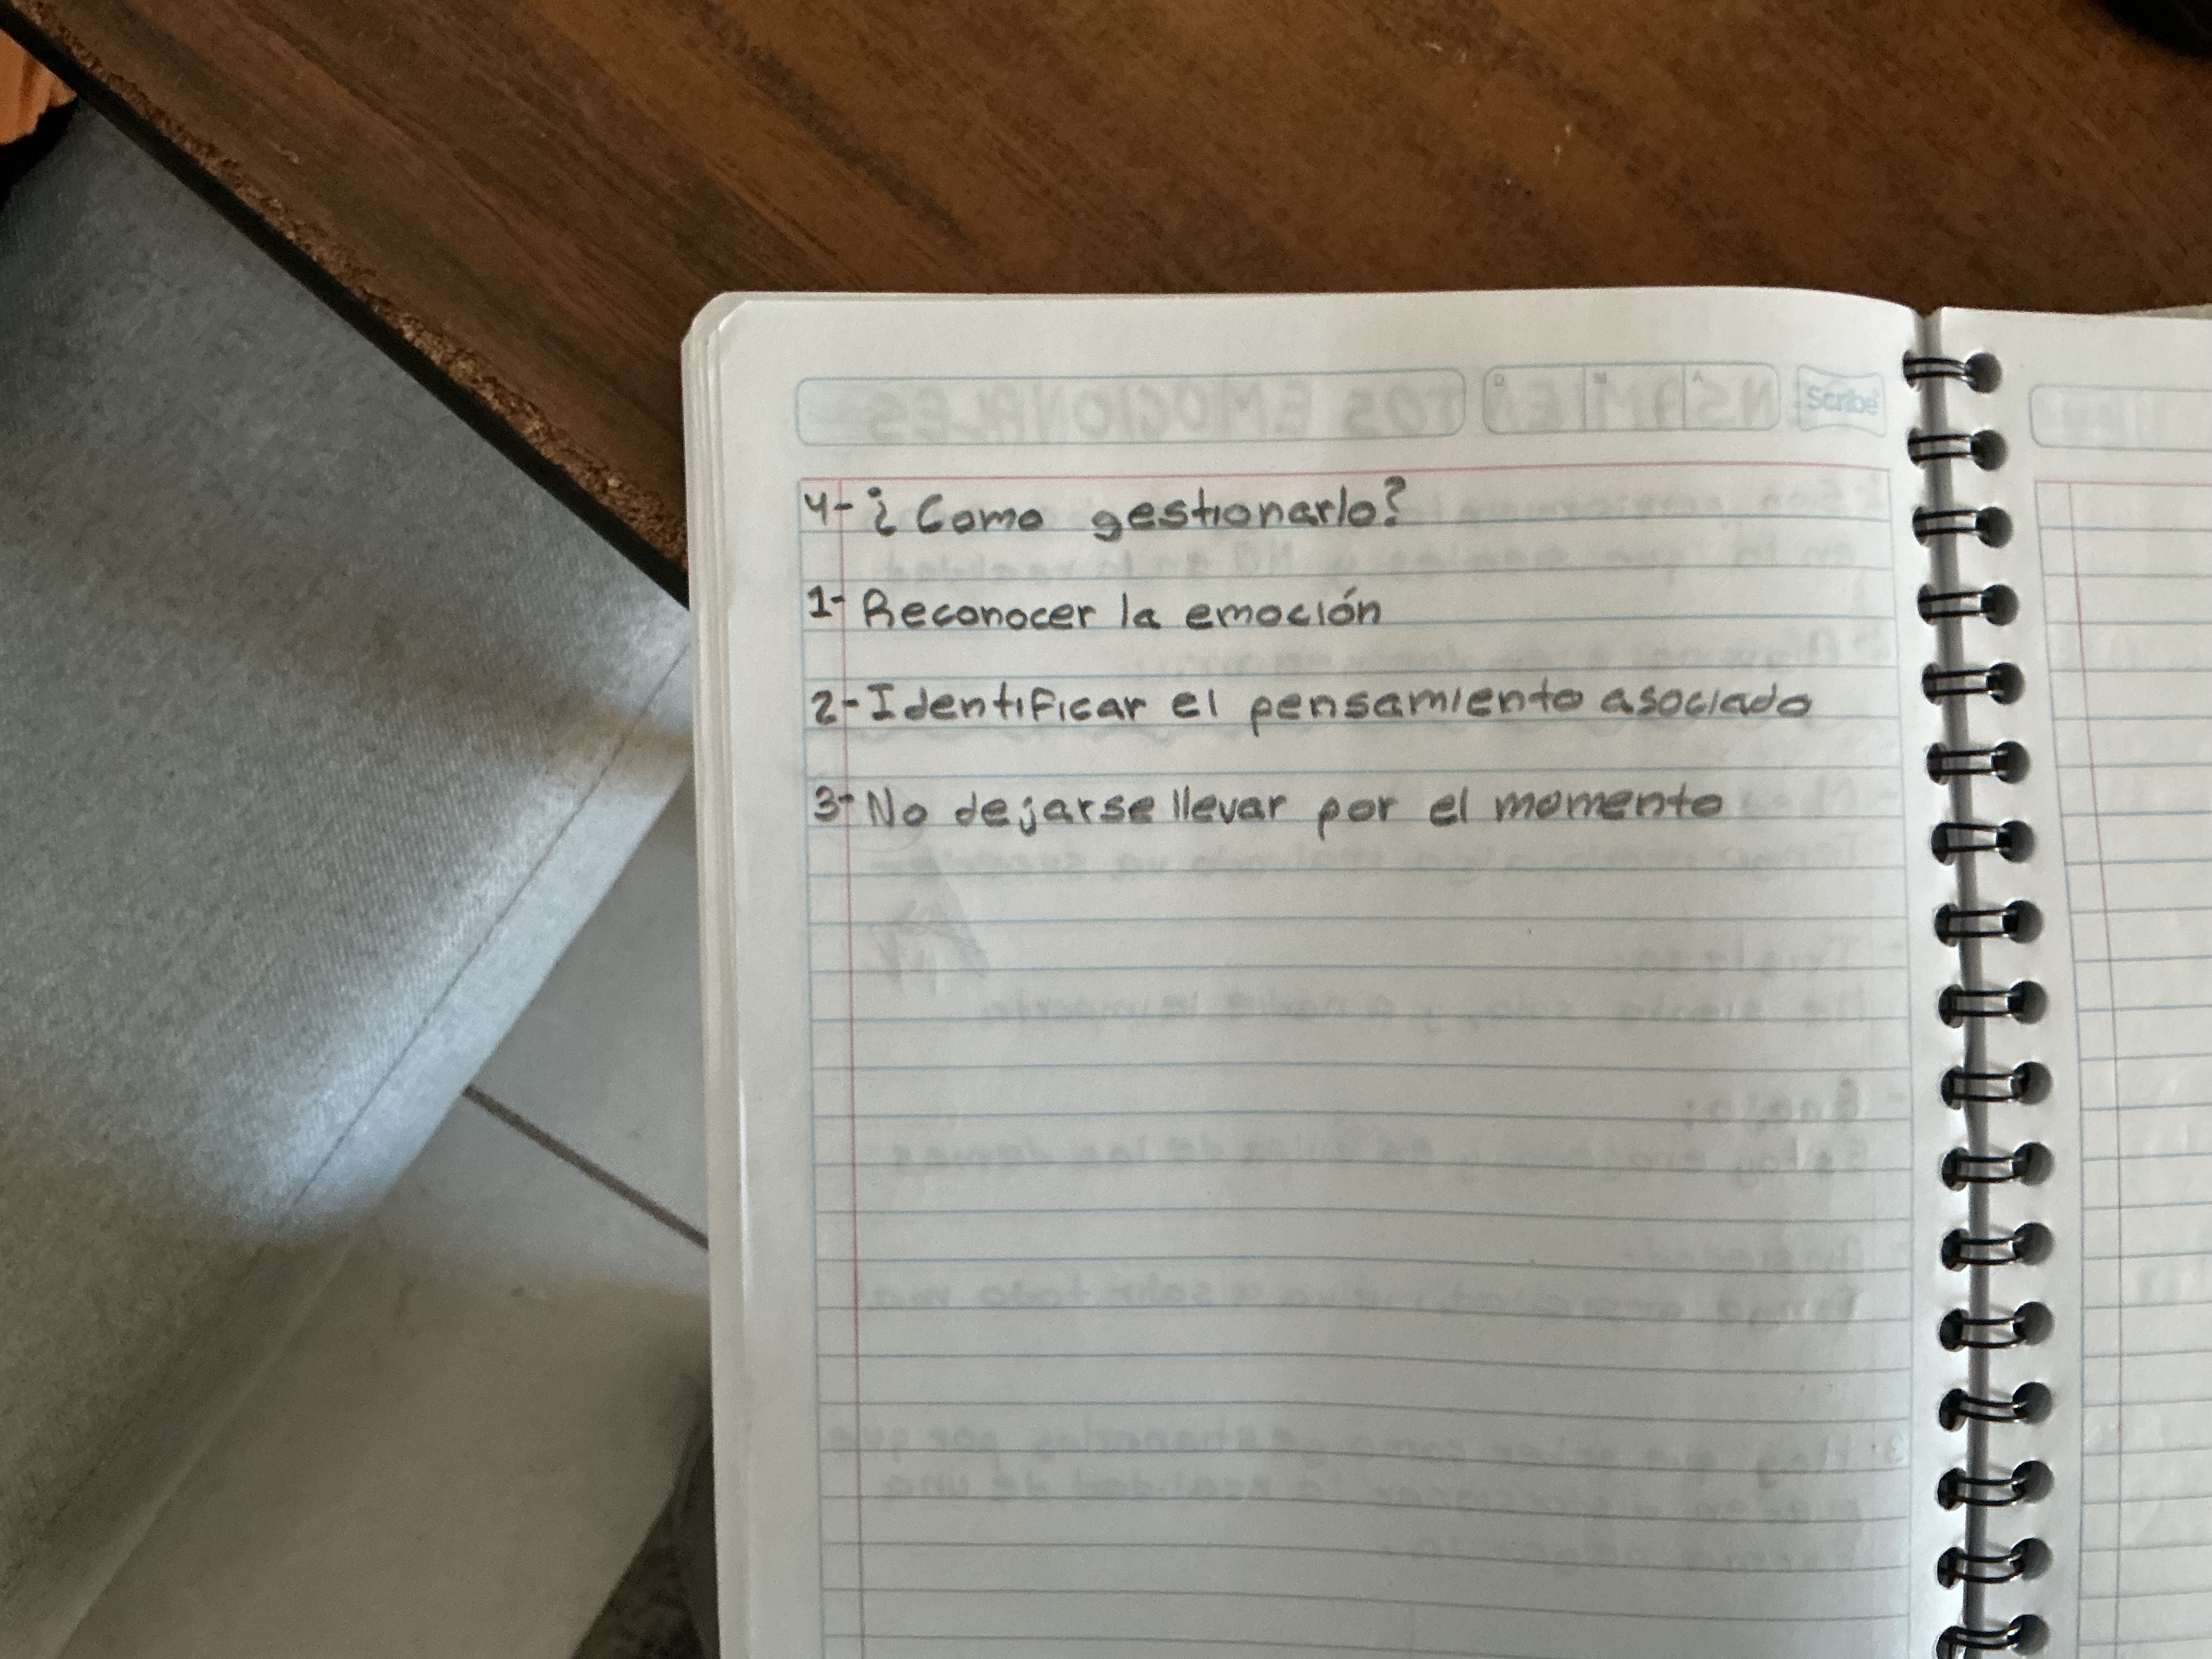 Scribe
4- ¿Como gestionarlo?
1- Reconocer la emoción
2- Identificar el pensamiento asociado
3- No dejarse llevar por el momento